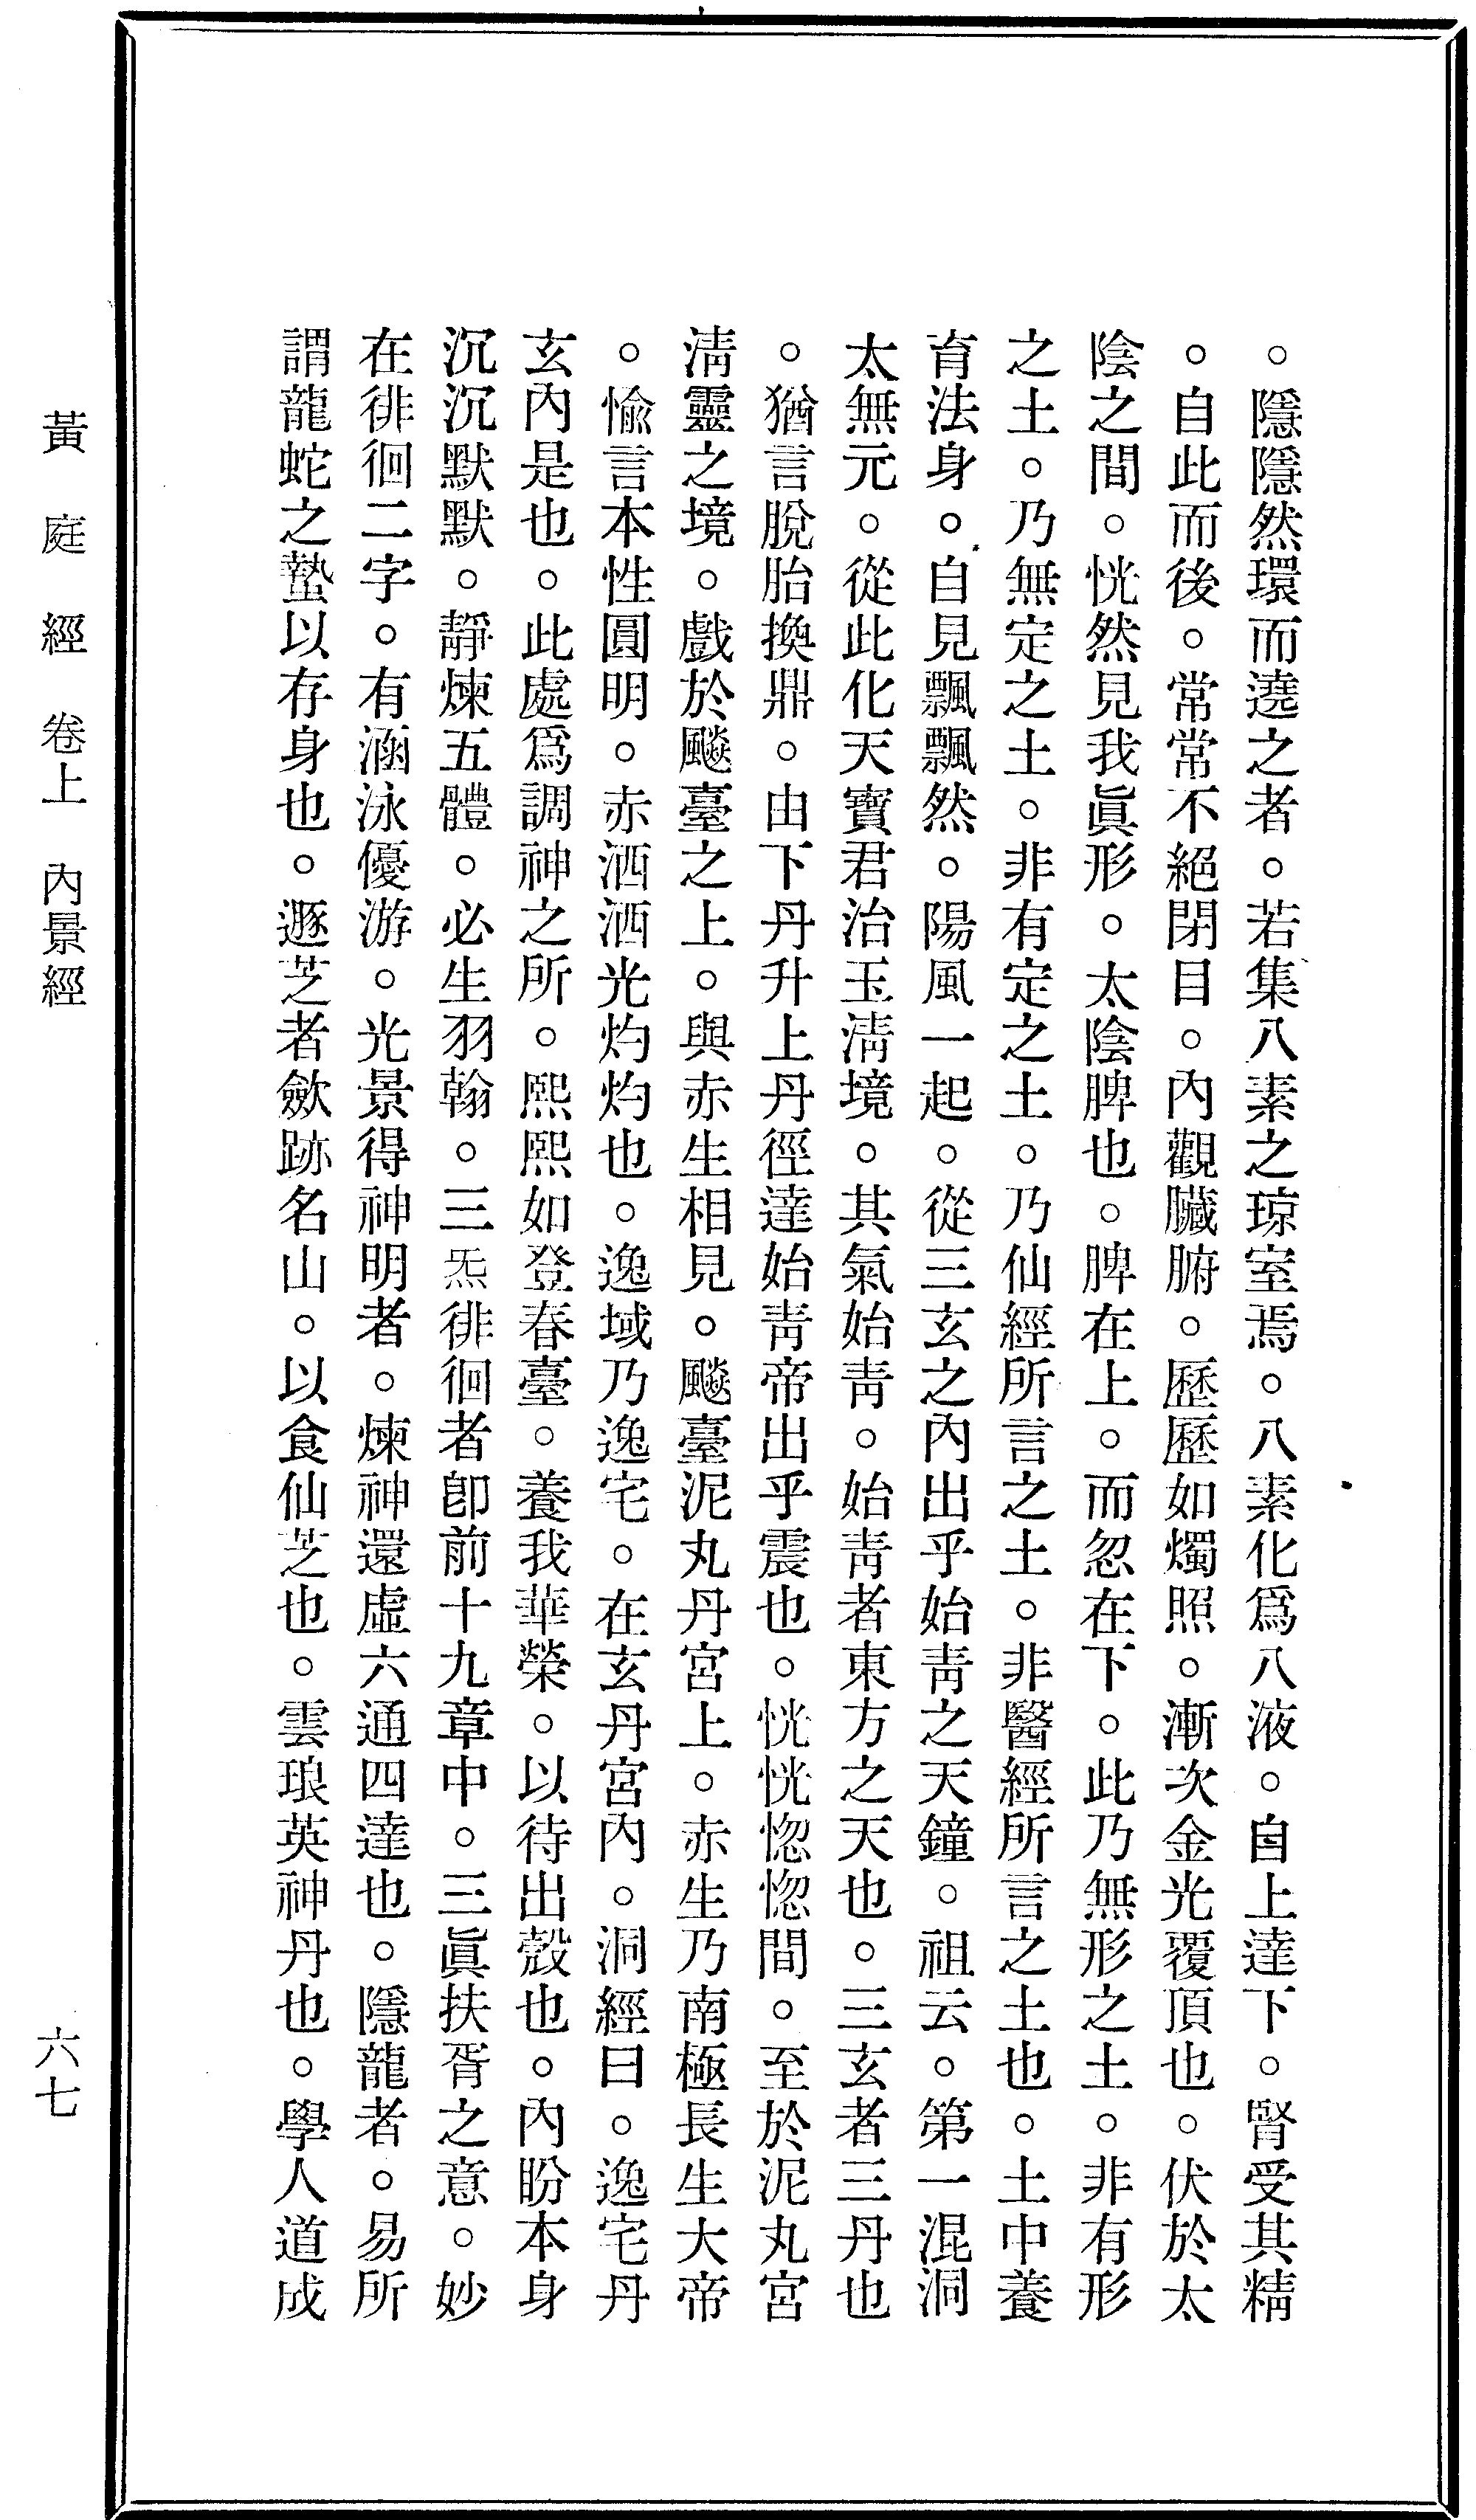 。隱隱然環而遶之者。若集八素之琼室焉。八素化爲八液。自上達下。腎受其精
。自此而後。常常不絕閉目。內觀臟腑。歷歷如燭照。漸次金光覆頂也。伏於太
陰之間。恍然見我眞形。太陰脾也。脾在上。而忽在下。此乃無形之土。非有形
之土。乃無定之土。非有定之土。乃仙經所言之土。非醫經所言之土也。土中養
育法身。自見飄飄然。陽風一起。從三玄之內出乎始靑之天鐘。祖云。第一混洞
太無元。從此化天寶君治玉淸境。其氣始靑。始靑者東方之天也。三玄者三丹也
。猶言脫胎換鼎。由下丹升上丹徑達始靑帝出乎震也。恍恍惚惚間。至於泥丸宮
淸靈之境。戲於飈臺之上。與赤生相見。飈臺泥丸丹宮上。赤生乃南極長生大帝
。愉言本性圓明。赤洒洒光灼灼也。逸域乃逸宅。在玄丹宮內。洞經曰。逸宅丹
玄內是也。此處爲調神之所。熙熙如登春臺。養我華榮。以待出殼也。內盼本身
沉沉默默。靜煉五體。必生羽翰。三炁徘徊者卽前十九章中。三眞扶胥之意。妙
在徘徊二字。有涵泳優游。光景得神明者。煉神還虛六通四達也。隱龍者。易所
謂龍蛇之蟄以存身也。遯芝者歛跡名山。以食仙芝也。雲琅英神丹也。學人道成
黃庭經 卷上 內景經 六七